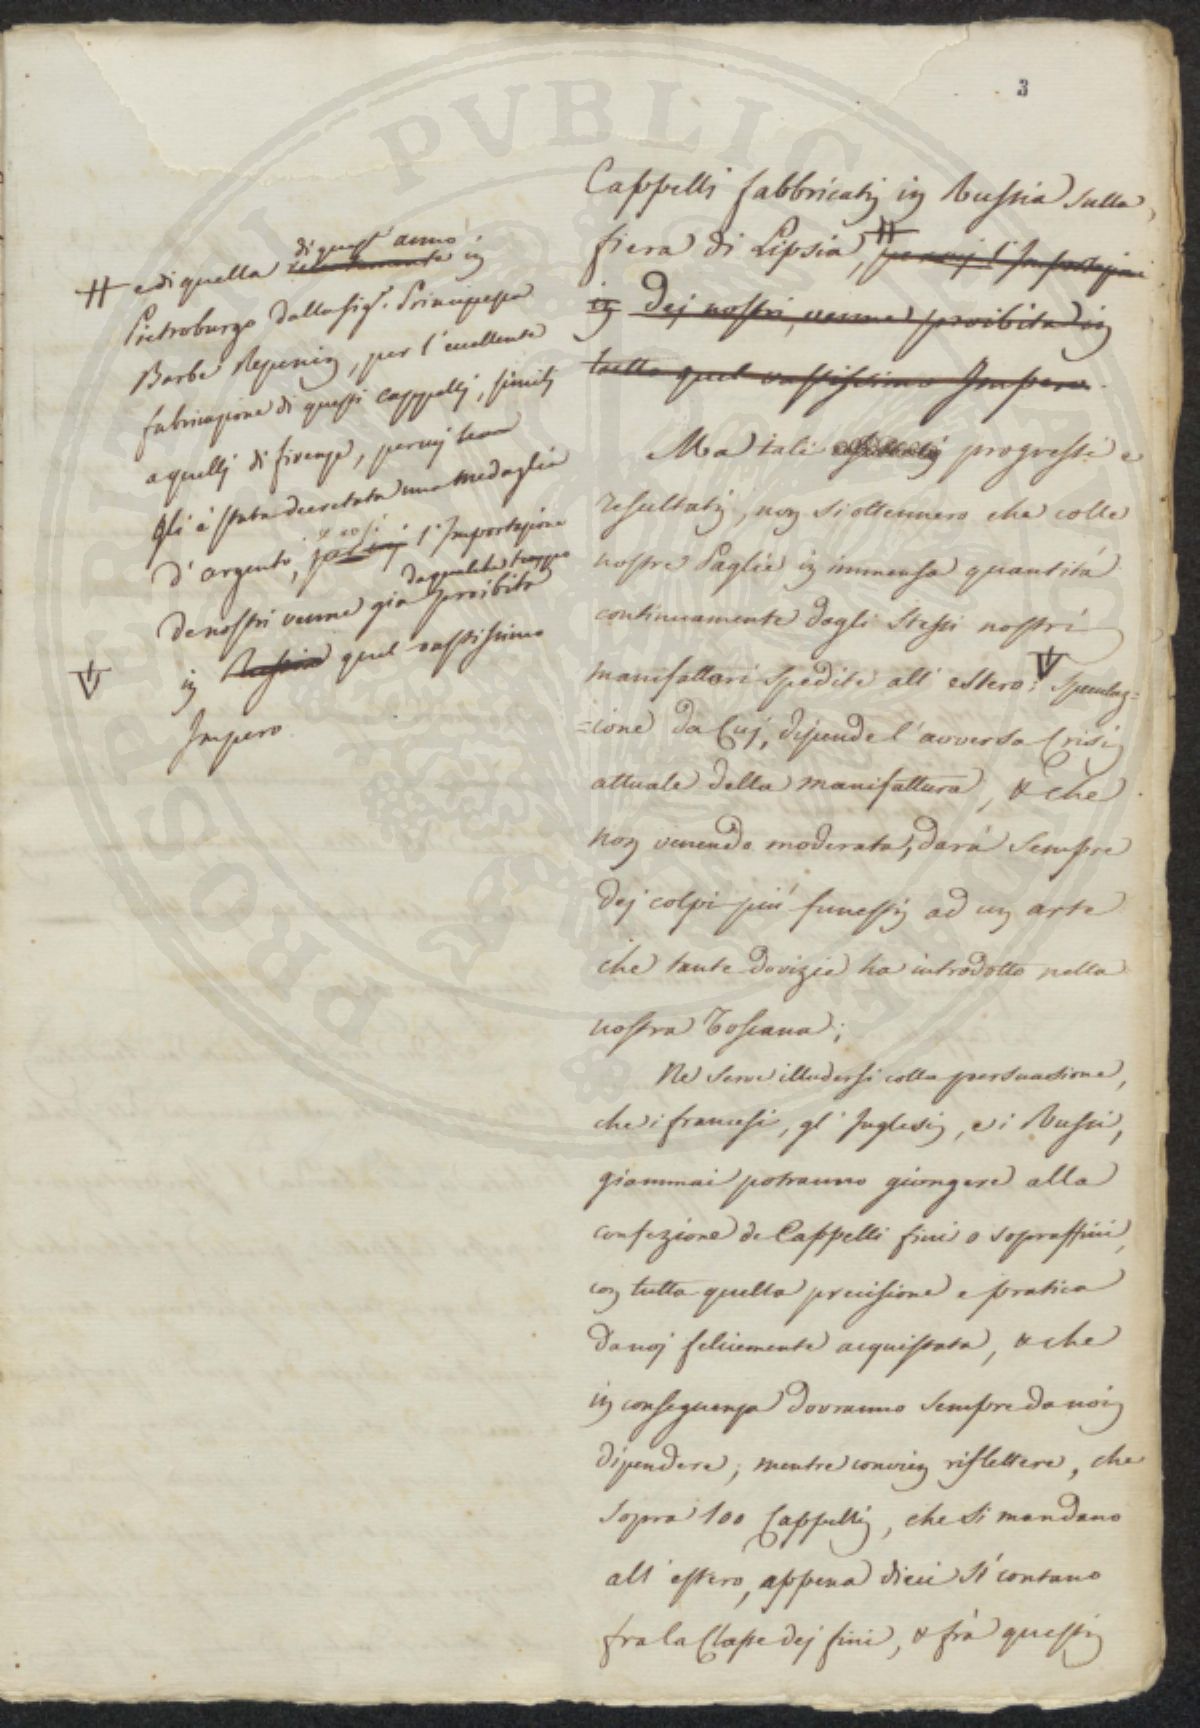 3
Cappelli fabbricati in Russia sulla
fiera di Lipsia, # per cui l'Importazione
in dei nostri, venne proibita in
tutto quel vastissimo Impero.
Ma tali progressi e
resultati, non si ottennero che colle
nostre Paglie in immensa quantità
continuamente dagli stessi nostri
manifattori spedite all'estero: speculaz=
=ione da Cui, dipende l'avversa Crisi
attuale della manifattura, & che
non venendo moderata, darà sempre
dei colpi più funesti ad un arte
che tante dovizie ha introdotto nella
nostra Toscana;
Ne serve illudersi colla persuasione,
che i francesi, gl'Inglesi, e i Russi,
giammai potranno giongere alla
confezione de Cappelli fini o sopraffini,
con tutta quella precisione e pratica
da noi felicemente acquistata, & che
in conseguenza dovranno sempre da noi
dipendere; mentre convien riflettere, che
sopra 100 Cappelli, che si mandano
all'estero, appena dieci si contano
fra la Classe dei fini, & frà questi
# e di quella di quest'anno in
Pietroburgo dalla Sig.ª Principessa
Barbe Repenin, per l'eccellente
fabricazione di questi cappelli, simili
a quelli di firenze, per cui
gli è stata decretata una medaglia
d'argento, e così per cui l'Importazione
de nostri venne già da qualche tempo proibita
in Russia quel vastissimo
Impero.